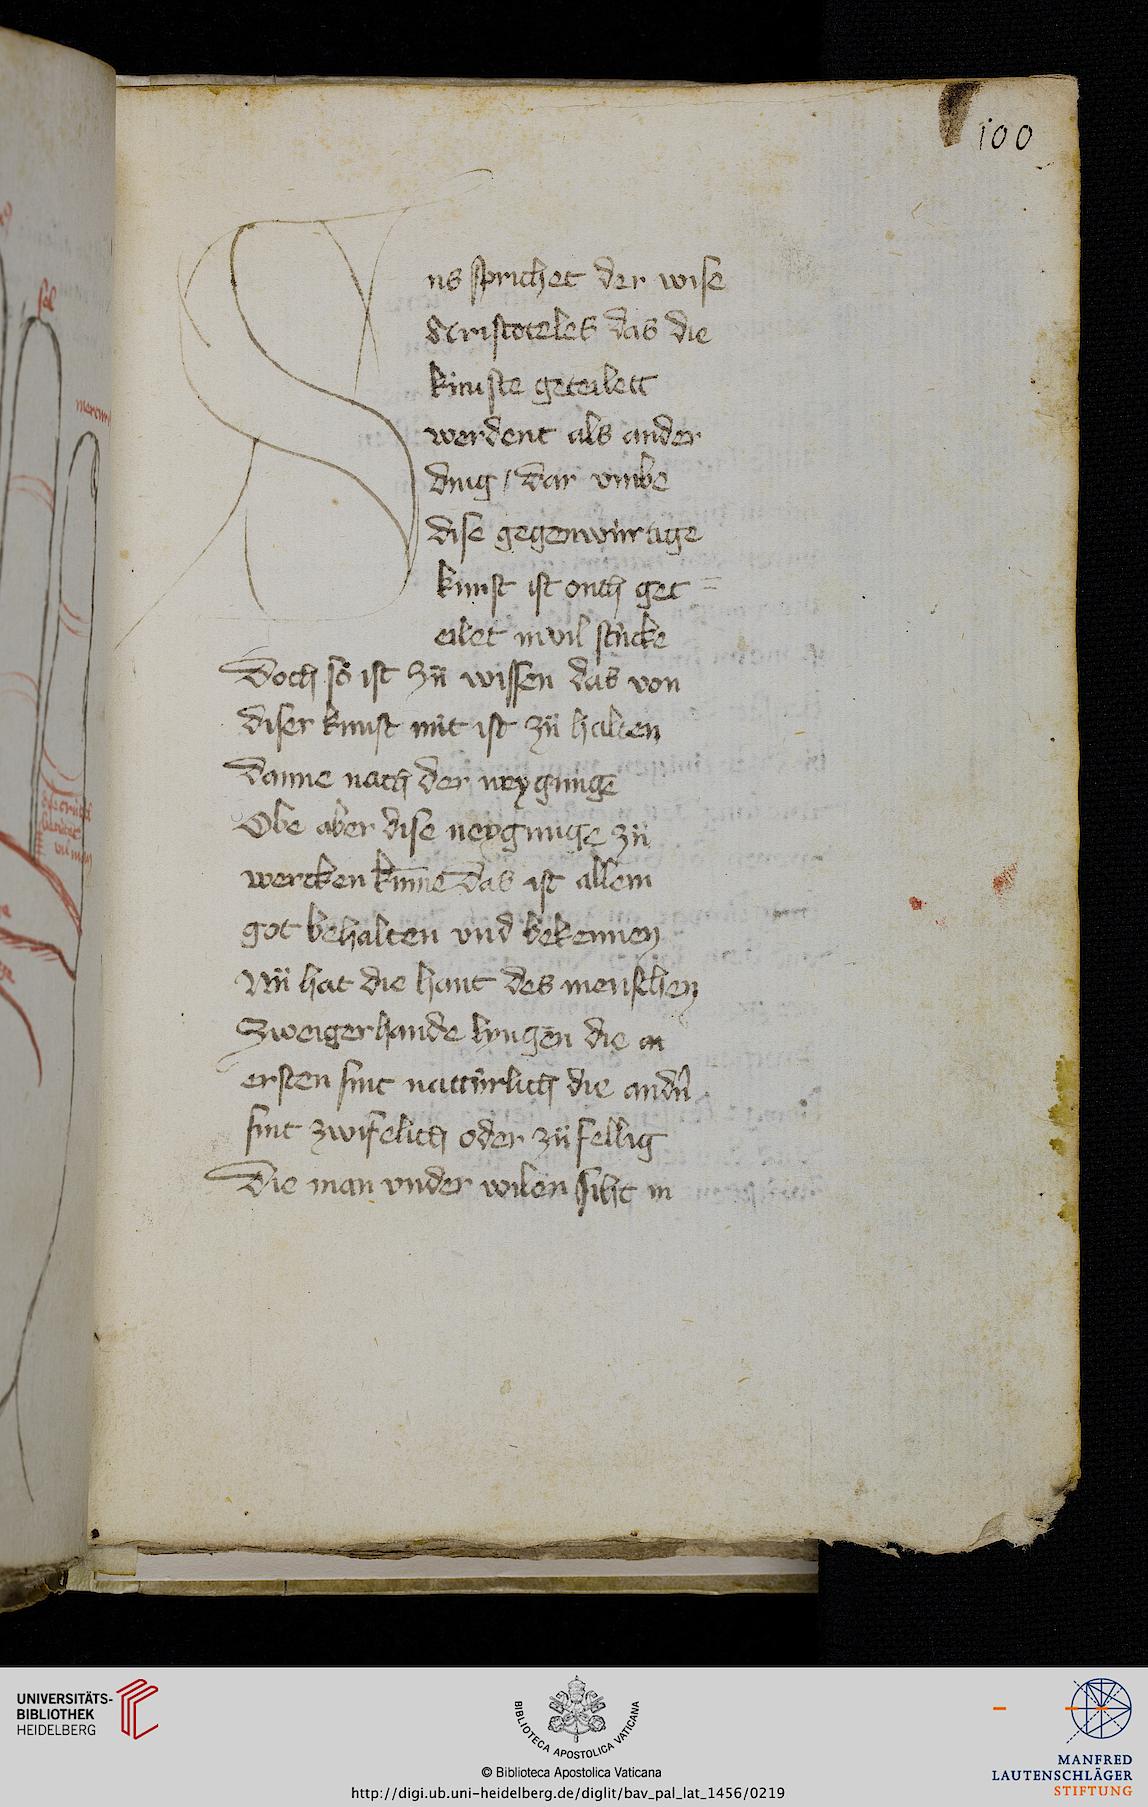 100
sol
ns sprichet der wise
Aristoteles das die
künste geteilett
werdent als ander
ding / dar vmbe
dise gegenwürtige
kunst ist ouch get =
eilet in vil stücke
Doch so ist zü wissen das von
diser kunst nüt ist zü halten
danne nach der neygunge
Obe aber dise neygunge zü
wercken kūme das ist allein
got behalten vnd bekennen
Nü hat die hant des menschen
Zweigerhande lyngen die
ersten sint nattürlich die andn̄
sint zwifelich oder züfellig
Die man vnder wilen siht in
UNIVERSITÄTS-
BIBLIOTHEK
HEIDELBERG
BIBLIOTECA APOSTOLICA VATICANA
© Biblioteca Apostolica Vaticana
http://digi.ub.uni-heidelberg.de/diglit/bav_pal_lat_1456/0219
MANFRED
LAUTENSCHLÄGER
STIFTUNG